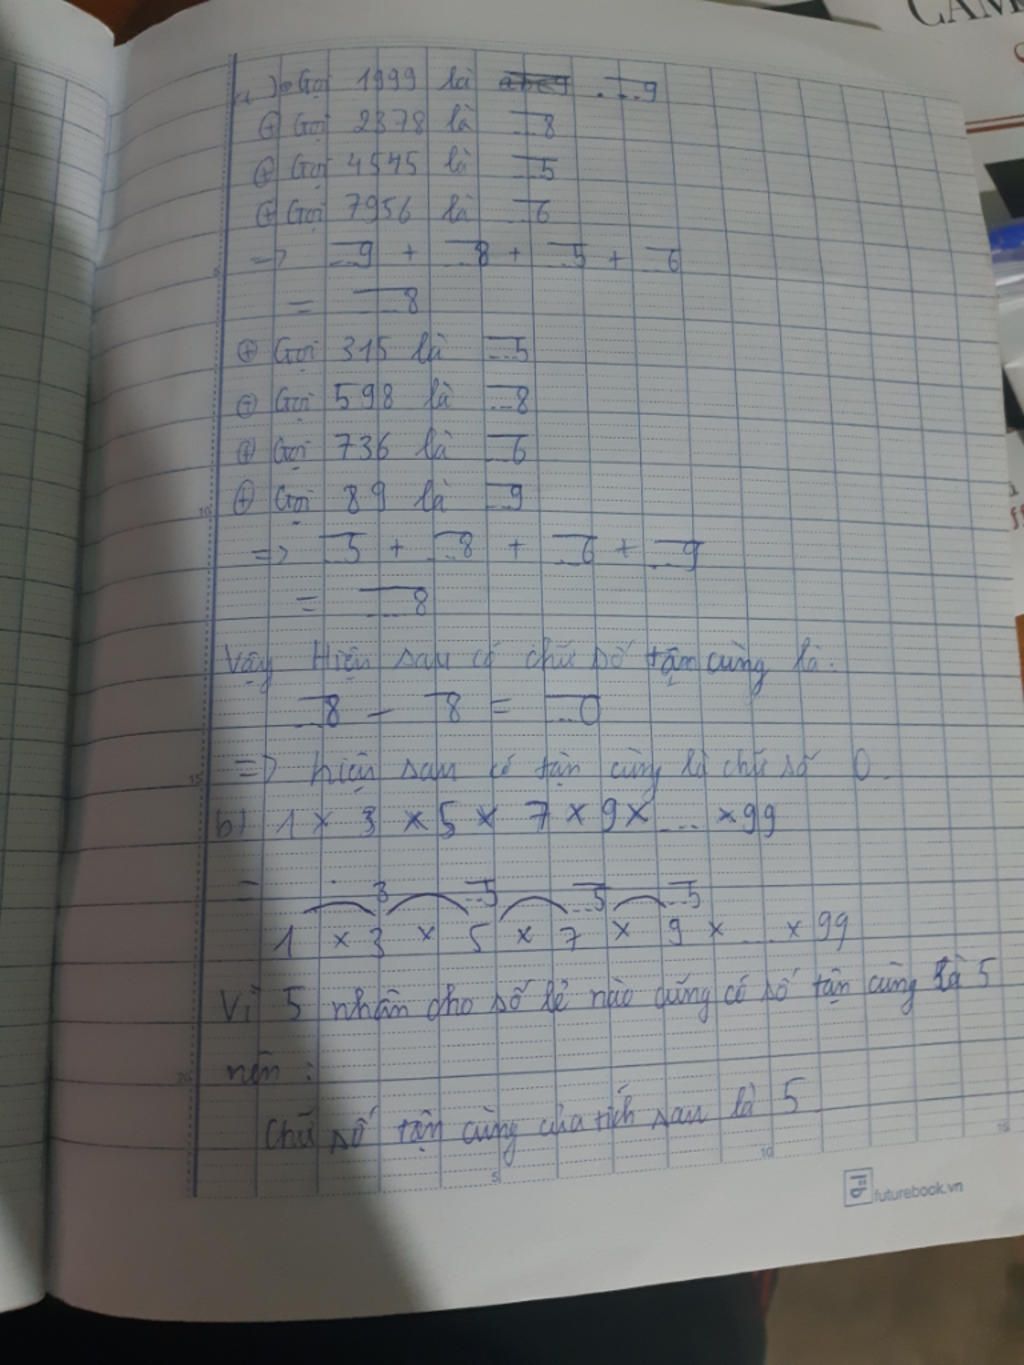 a) Gọi 1999 là ....9
⊕ Gọi 2378 là ...8
⊕ Gọi 4545 là ...5
⊕ Gọi 7956 là ...6
=> ...9 + ...8 + ...5 + ...6
= ...8
⊕ Gọi 315 là ...5
⊕ Gọi 598 là ...8
⊕ Gọi 736 là ...6
⊕ Gọi 89 là ...9
=> ...5 + ...8 + ...6 + ...9
= ...8
Vậy Hiện sau có chữ số tận cùng là:
...8 - ...8 = ...0
=> hiện sau có tận cùng là chữ số 0.
b) 1 x 3 x 5 x 7 x 9 x .... x 99
= 3 ...5 ...5 ...5
1 x 3 x 5 x 7 x 9 x .... x 99
Vì 5 nhân cho số lẻ nào cũng có số tận cùng là 5
nên :
Chữ số tận cùng của tích sau là 5
futurebook.vn
CAM